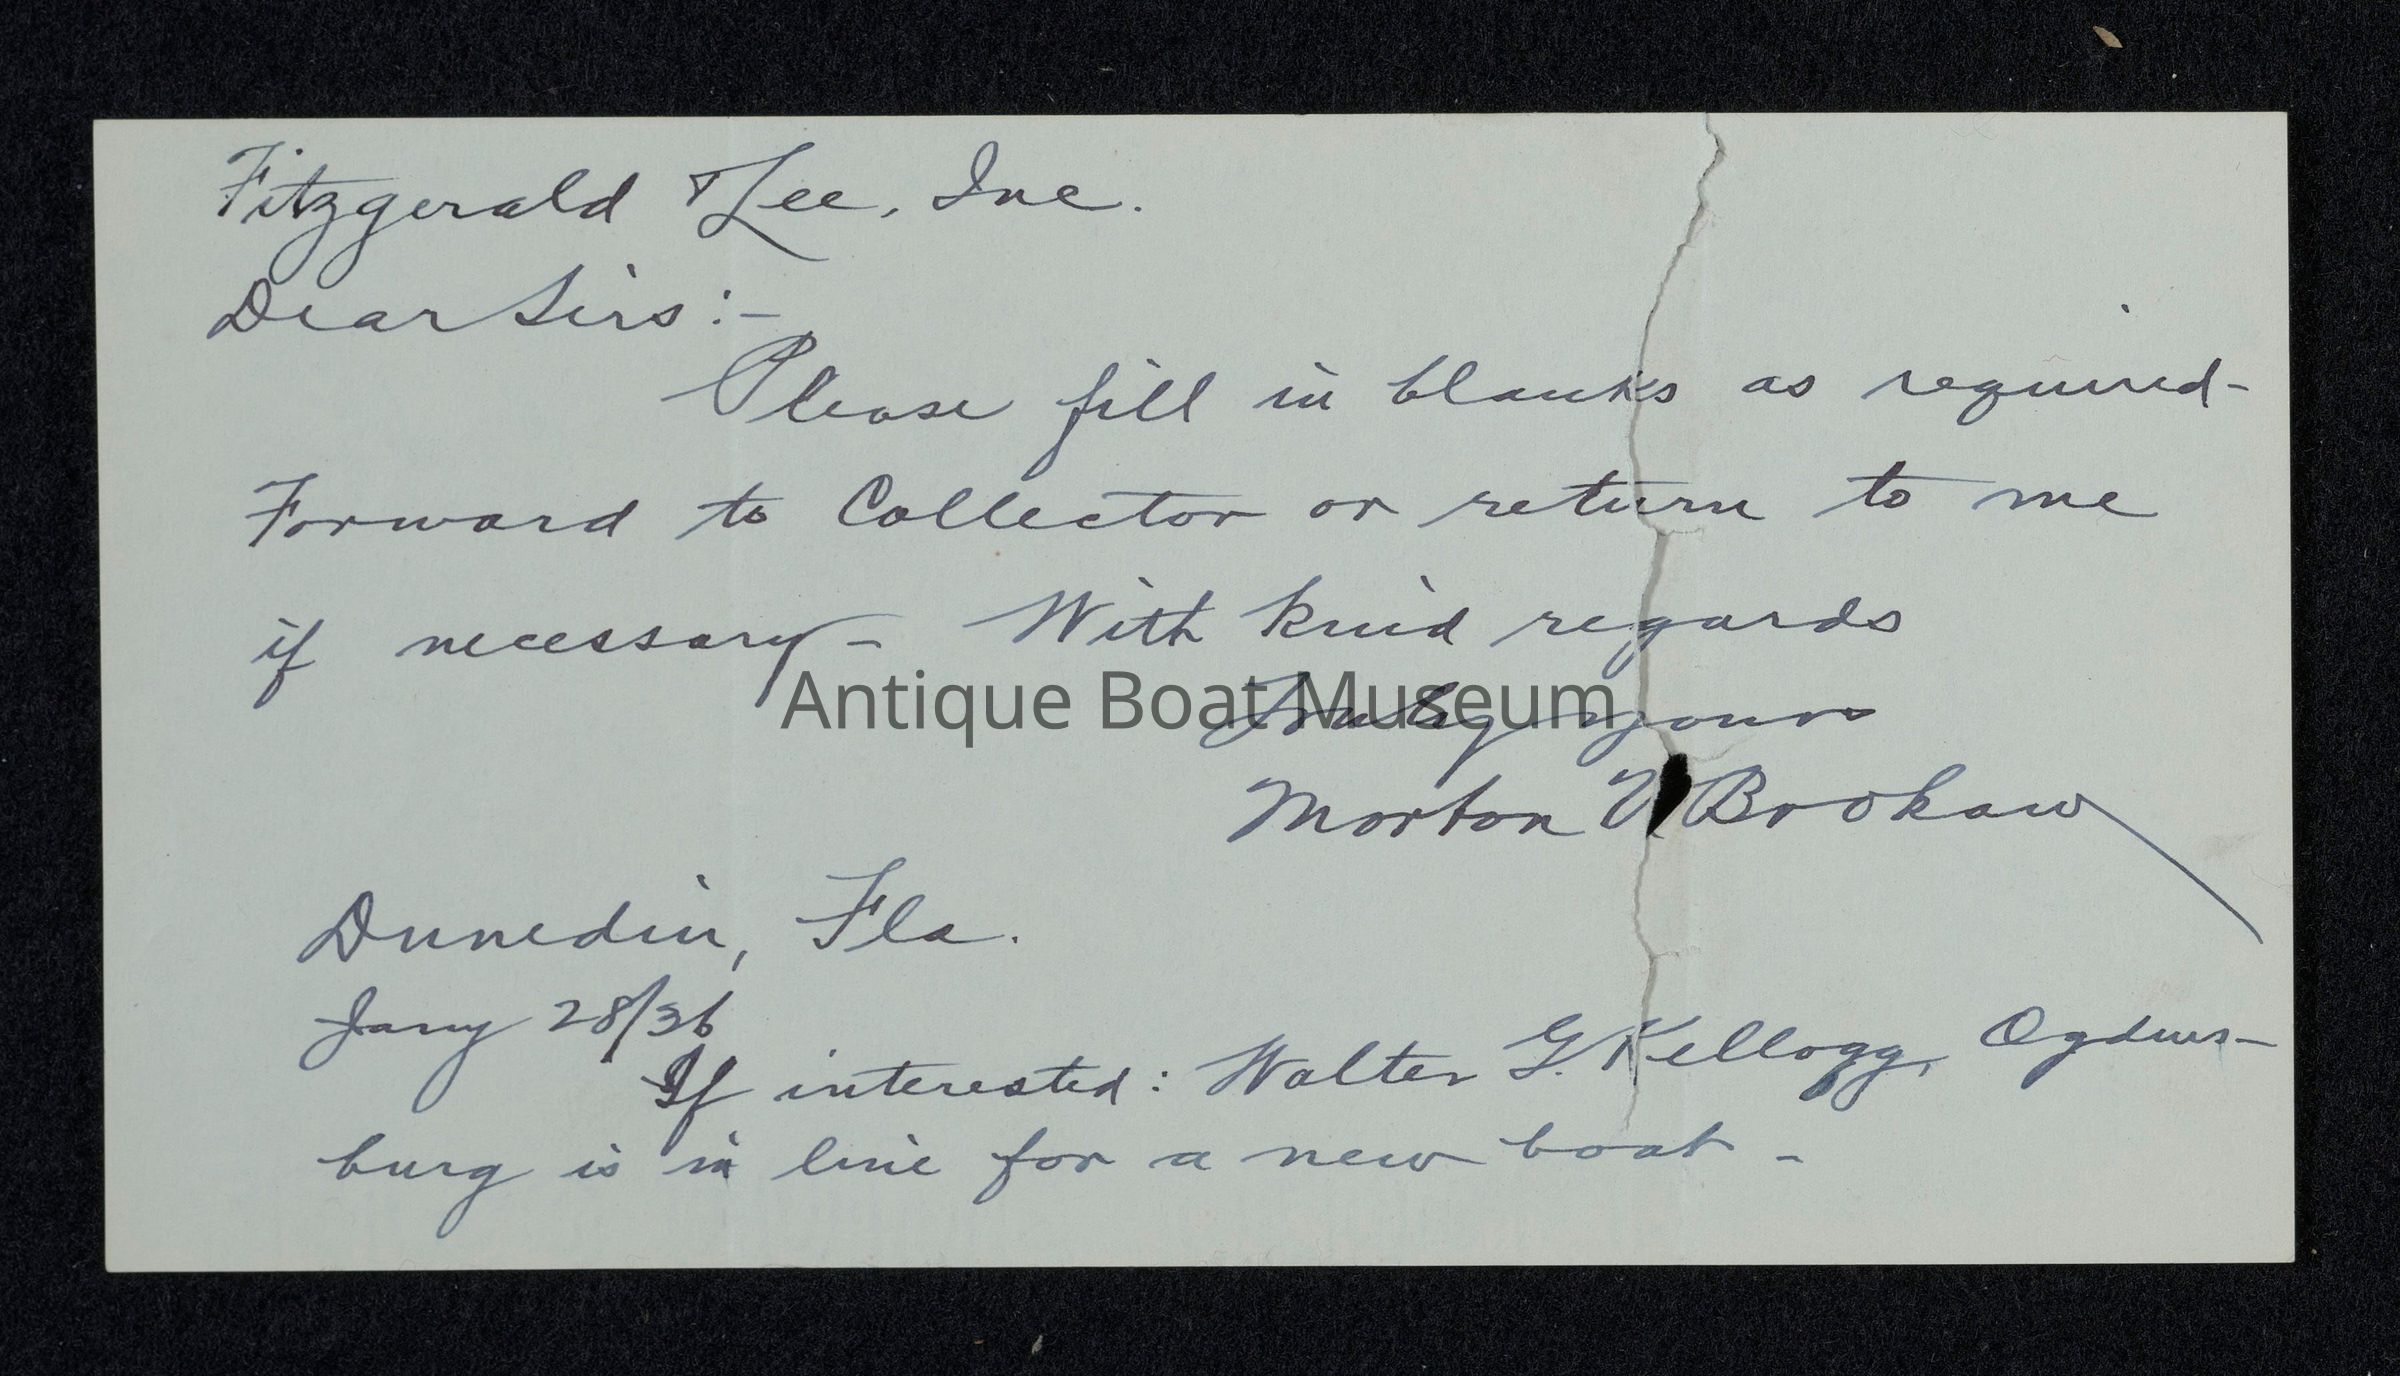 Fitzgerald & Lee, Inc.
Dear Sirs:-
Please fill in blanks as required-
Forward to Collector or return to me
if necessary- With kind regards
Truly yours
Antique Boat Museum
Morton V Brokaw
Dunedin, Fla.
Jany 28/36
If interested: Walter G. Kellogg, Ogdens-
burg is in line for a new boat -